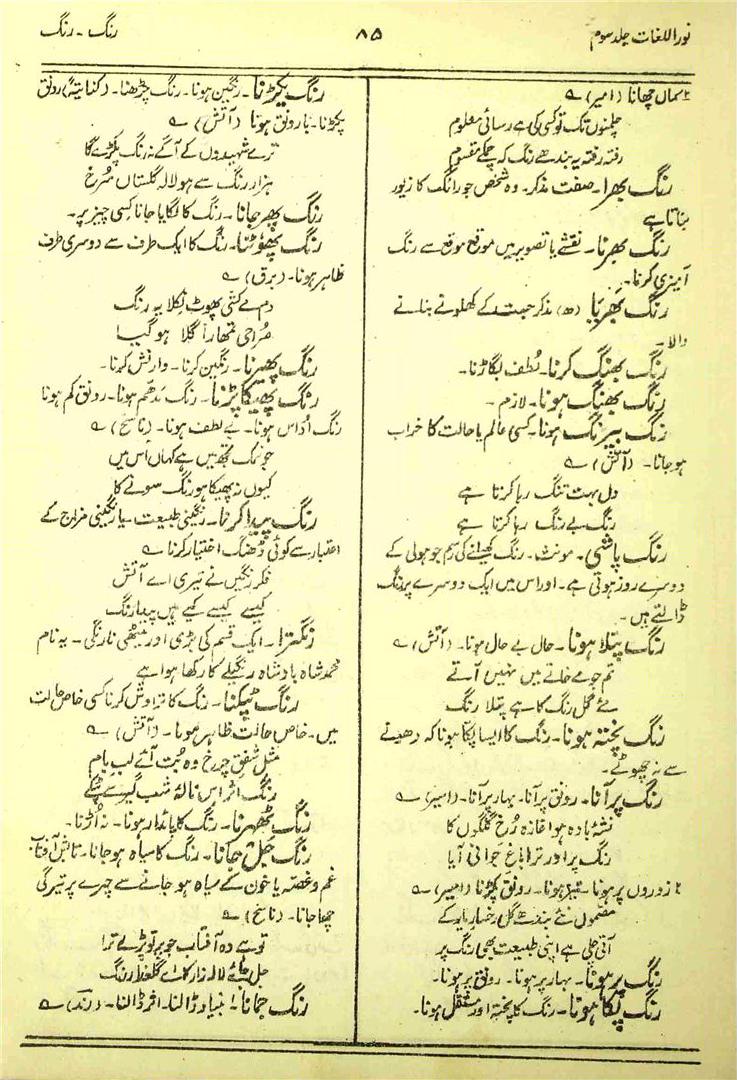 نوراللغات جلد سوم
۸۵
رنگ - رنگ
۲ سماں چھانا (امیر) ؎
چلمنوں تک تو کسی کی ہے رسائی معلوم
رفتہ رفتہ یہ بندھے رنگ کہ چمکے مقسوم
رنگ بھرا۔ صفت مذکر۔ وہ شخص جو رانگ کا زیور
بناتا ہے
رنگ بھرنا۔ نقشے یا تصویر میں موقع موقع سے رنگ
آمیزی کرنا۔
رنگ بھریا (ھ) مذکر جست کے کھلونے بنانے
والا۔
رنگ بھنگ کرنا۔ لُطف بگاڑنا۔
رنگ بھنگ ہونا۔ لازم۔
رنگ بیرنگ ہونا۔ کسی عالم یا حالت کا خراب
ہو جانا۔ (آتش) ؎
دل بہت تنگ رہا کرتا ہے
رنگ بے رنگ رہا کرتا ہے
رنگ پاشی۔ مونث۔ رنگ کھیلنے کی رسم جو ہولی کے
دوسرے روز ہوتی ہے۔ اور اس میں ایک دوسرے پر رنگ
ڈالتے ہیں۔
رنگ پتلا ہونا۔ حال بے حال ہونا۔ (آتش) ؎
تم جو مے خانے میں نہیں آتے
مئے گل رنگ کا ہے پتلا رنگ
رنگ پختہ ہونا۔ رنگ کا ایسا پکا ہونا کہ دھونے
سے نہ چھوٹے۔
رنگ پر آنا۔ رونق پر آنا۔ بہار پر آنا۔ (امیر) ؎
نشۂ بادہ ہوا غازہ رُخ گلگوں کا
رنگ پر اور ترا باغ جوانی آیا
۲ زوروں پر ہونا۔ تیز ہونا۔ رونق پکڑنا (امیر) ؎
مضموں نئے بندھے گل رخسار یار کے
آئی چلی ہے اپنی طبیعت بھی رنگ پر
رنگ پر ہونا۔ بہار پر ہونا۔ رونق پر ہونا۔
رنگ پکا ہونا۔ رنگ کا پختہ اور مستقل ہونا۔
رنگ پکڑنا۔ رنگین ہونا۔ رنگ چڑھنا۔ (کنایتہً) رونق
پکڑنا۔ بارونق ہونا (آتش) ؎
ترے شہیدوں کے آگے نہ رنگ پکڑے گا
ہزار رنگ سے ہو لالہ گلستاں سُرخ
رنگ پھر جانا۔ رنگ کا لگایا جانا کسی چیز پر۔
رنگ پھوٹنا۔ رنگ کا ایک طرف سے دوسری طرف
ظاہر ہونا۔ (برق) ؎
دم مے کشی پھوٹ نکلا یہ رنگ
صُراحی تمھارا گلا ہو گیا
رنگ پھیرنا۔ رنگین کرنا۔ وارنش کرنا۔
رنگ پھیکا پڑنا۔ رنگ مدھم ہونا۔ رونق کم ہونا
رنگ اُداس ہونا۔ بے لطف ہونا۔ (ناسخ) ؎
جو نمک تجھ میں ہے کہاں اُس میں
کیوں نہ پھیکا ہو رنگ سونے کا
رنگ پیدا کرنا۔ رنگینی طبیعت۔ یا رنگینی مزاج کے
اعتبار سے کوئی ڈھنگ اختیار کرنا ؎
فکر رنگیں نے تیری اے آتش
کیسے کیسے کیے ہیں پیدا رنگ
رنگترا۔ ایک قسم کی بڑی اور میٹھی نارنگی۔ یہ نام
محمد شاہ بادشاہ رنگیلے کا رکھا ہوا ہے
رنگ ٹپکنا۔ رنگ کا تراوش کرنا کسی خاص حالت
میں۔ خاص حالت ظاہر ہونا۔ (آتش) ؎
مثل شفق چرخ وہ بُت آئے لب بام
رنگ اثر اس نالۂ شب گیر سے ٹپکے
رنگ ٹھہرنا۔ رنگ کا پائدار ہونا۔ نہ اُڑنا۔
رنگ جل جانا۔ رنگ کا سیاہ ہو جانا۔ تابش آفتاب
غم و غصہ یا خون کے سیاہ ہو جانے سے چہرے پر تیرگی
چھا جانا۔ (ناسخ) ؎
تو ہے وہ آفتاب جو پرتو پڑے ترا
جل جائے لالہ زار کا اے گلعذار رنگ
رنگ جمانا۔ ۱ بنیاد ڈالنا۔ اثر ڈالنا۔ (رند) ؎